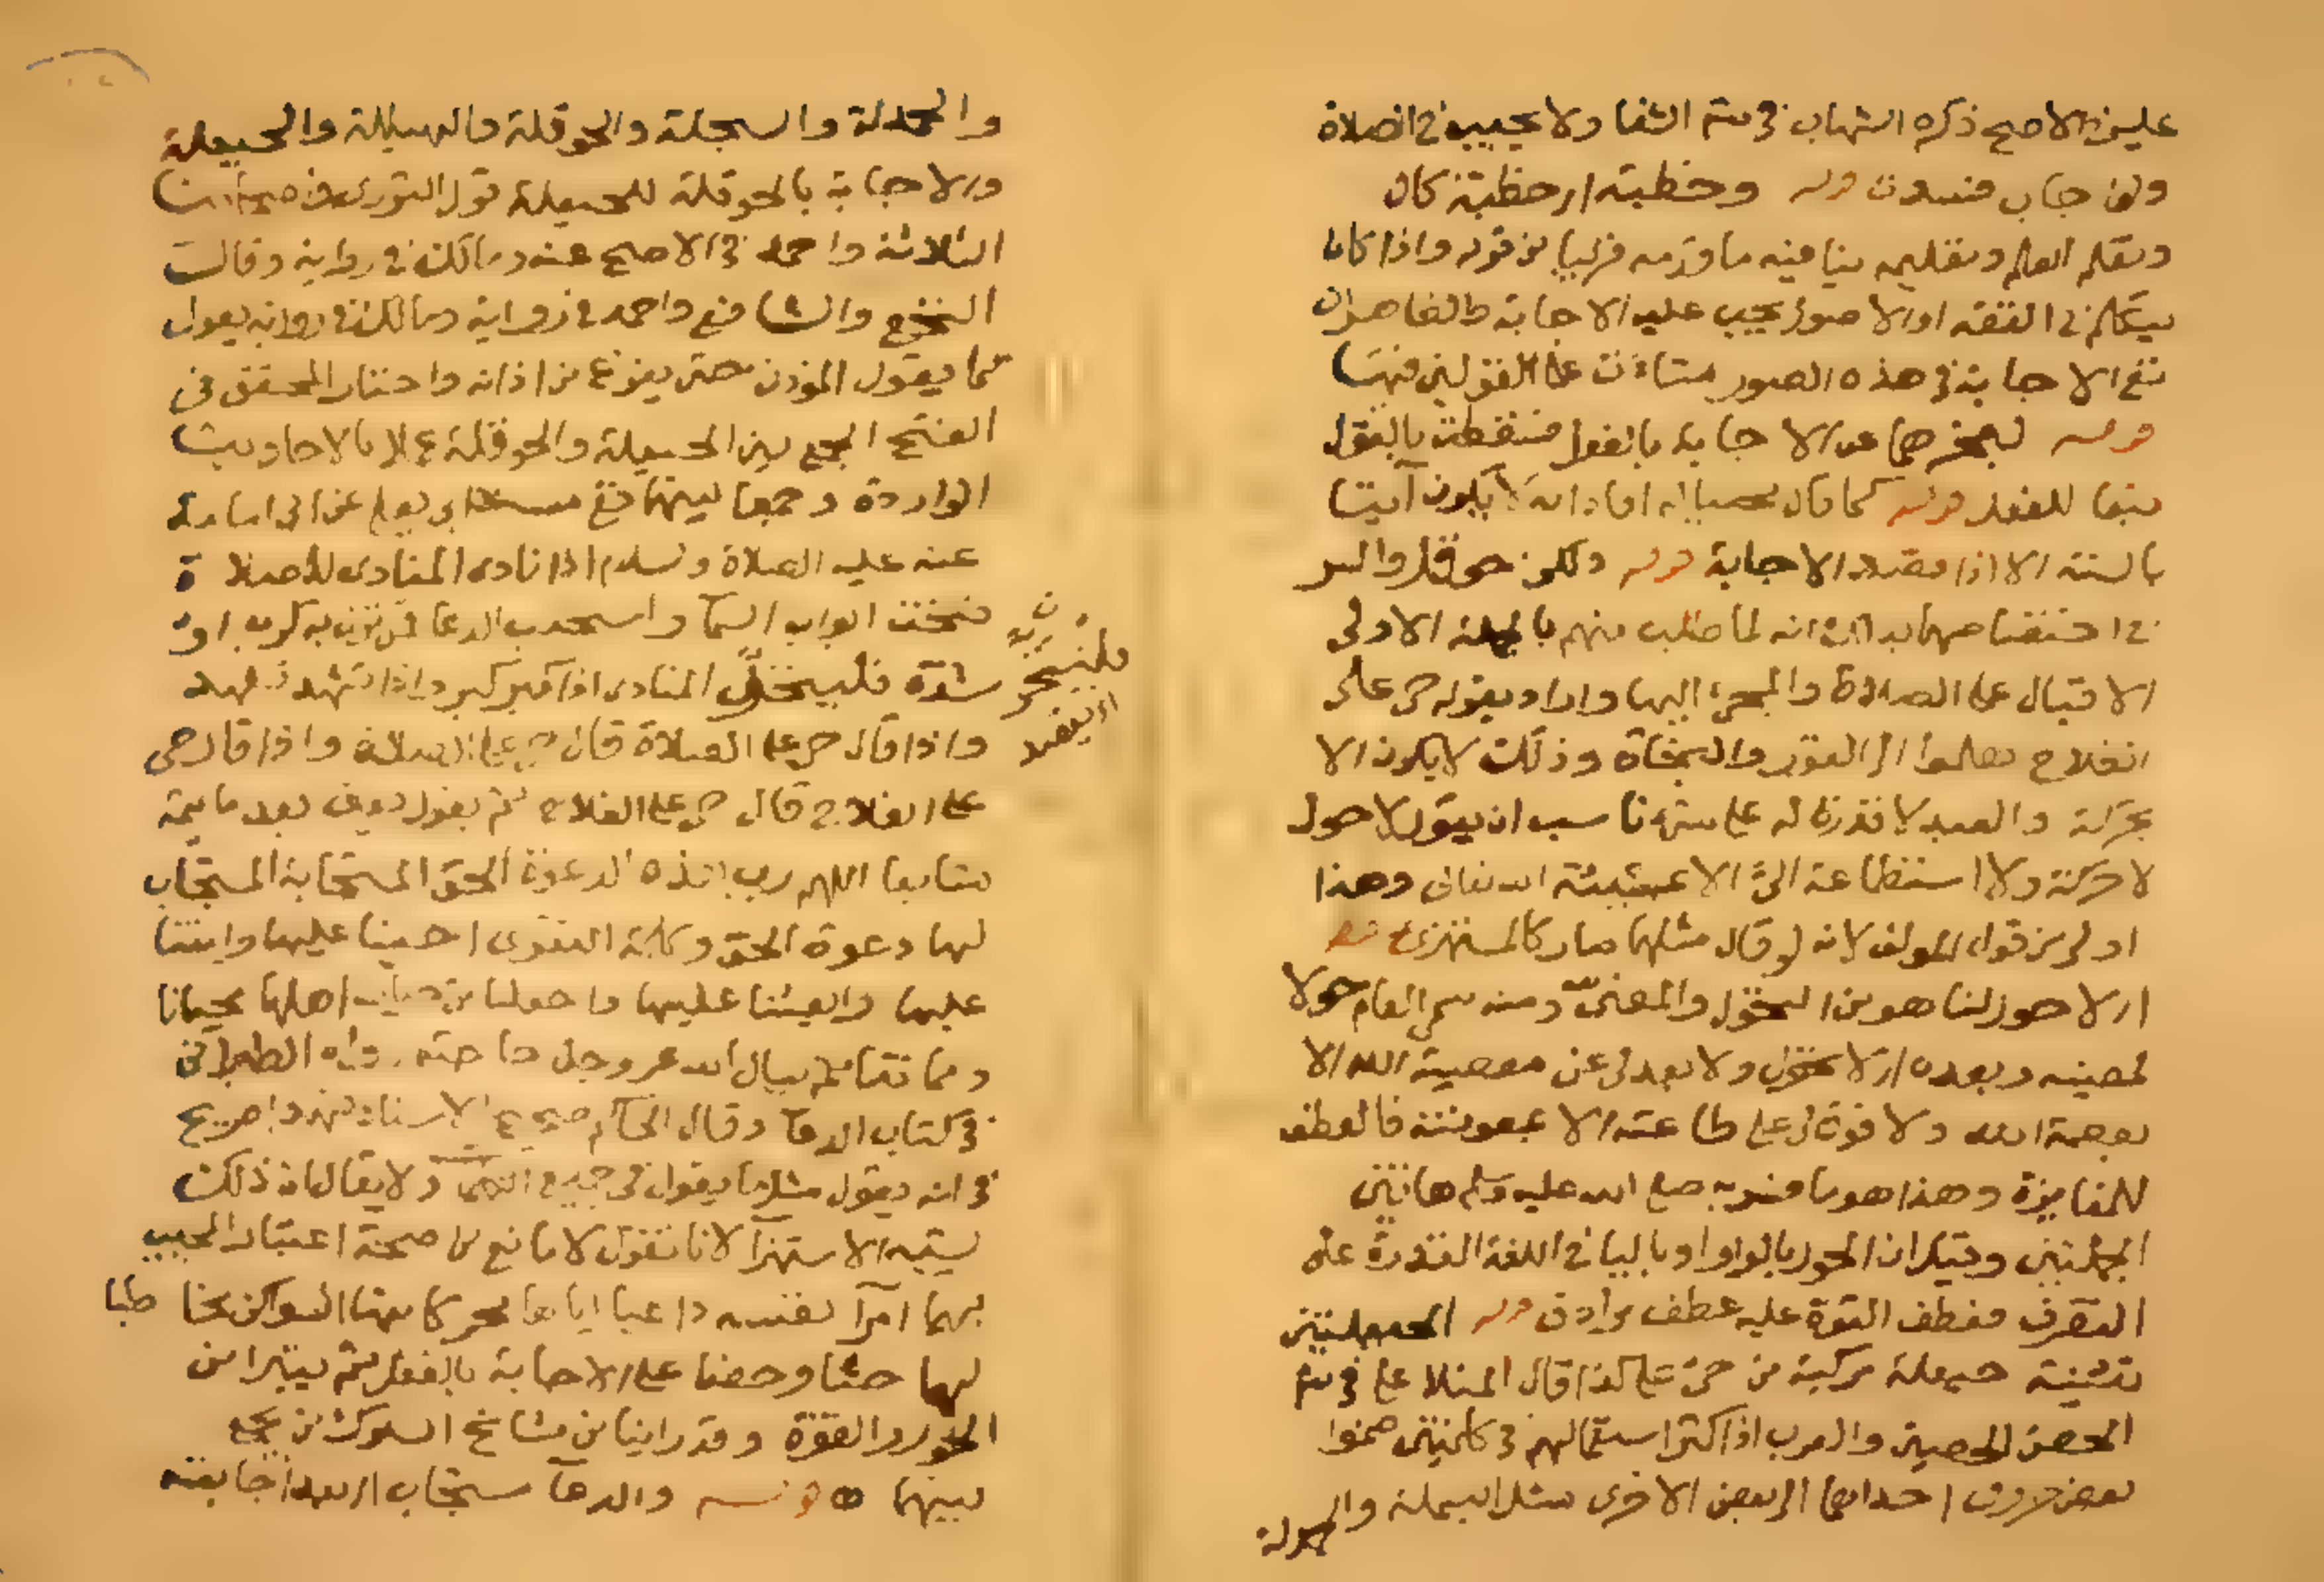 عليه في الاصح ذكره الشهاب في شرح الشفا ولا يجيب في الصلاة
ولو اجاب فسدت قوله وخطبته اي خطبة كان
وتعلم العلم وتعليمه ينافيه ما قدمه قريبا من قوله واذا كان
يتكلم في الفقه او الاصول يجب عليه الاجابة فالظاهر ان
نفي الاجابة في هذه الصور على القولين فيها
قوله لعجزهما عن الاجابة بالفعل فسقطت بالقول
تبعا للفعل قوله كما قال افاد انه لا يكون آتيا
بالسنة الا اذا قصد الاجابة قوله ولكن حوقل والسر
في اختصاصهما بذلك انه لما طلب منهم بالجملة الاولى
الاقبال على الصلاة والمجيء اليها واراد بقوله حي على
الفلاح هلموا الى الفوز والنجاة وذلك لا يكون الا
بحركة والعبد لا قدرة له على شيء ناسب ان يقول لا حول
لا حركة ولا استطاعة الي الا بمشيئة الله تعالى وهذا
اولى من قول المولف لانه لو قال مثلهما صار كالمستهزئ
اي لا حول لنا هو من التحول والمعنى ومنه سمي العام حولا
لمضيه وبعده اي لا تحول ولا بعد لي عن معصية الله الا
بعصمة الله ولا قوة لي على طاعته الا بمعونته فالعطف
للمغايرة وهذا هو ما فسر به صلى الله عليه وسلم هاتين
الجملتين وقيل ان الحول بالواو او بالياء في اللغة القدرة على
التصرف فعطف القوة عليه عطف مرادف قوله الحيعلتين
تثنية حيعلة مركبة من حي على كذا قال المنلا علي في شرح
الحصن الحصين والعرب اذا كثر استعمالهم في كلمتين ضموا
بعض حروف احداهما الى بعض الاخرى مثل البسملة والحمدلة
والحمدلة والسبحلة والحوقلة والهيللة والحيعلة
والاجابة بالحوقلة للحيعلة قول الثوري واصحابنا
الثلاثة واحمد في الاصح عنه ومالك في رواية وقالت
النخعي والشافعي واحمد في رواية ومالك في رواية يقول
كما يقول المؤذن حتى يفرغ من اذانه واختار المحقق في
الفتح الجمع بين الحيعلة والحوقلة عملا بالاحاديث
الواردة وجمعا بينها ففي مسند ابي يعلى عن ابي امامة
عنه عليه الصلاة والسلام اذا نادى المنادي للصلاة
فتحت ابواب السماء واستجيب الدعا فمن نزل به كرب او
شدة فليتحين المنادي اذا كبر كبر واذا تشهد تشهد
واذا قال حي على الصلاة قال حي على الصلاة واذا قال حي
على الفلاح قال حي على الفلاح ثم يقول
اللهم رب هذه الدعوة الحق المستجابة المستجاب
لها دعوة الحق وكلمة التقوى احينا عليها وامتنا
عليها وابعثنا عليها واجعلنا من خيار اهلها محيانا
ومماتنا ثم يسال الله عز وجل حاجته رواه الطبراني
في كتاب الدعا وقال الحاكم صحيح الاسناد فهذا صريح
في انه يقول مثل ما يقول في جميع الكلمات ولا يقال ان ذلك
يشبه الاستهزآ لانا نقول لا مانع من صحة اعتبار المجيب
بهما آمرا لنفسه داعيا اياها محركا منها السواكن مخاطبا
لها حثا وحضا على الاجابة بالفعل ثم يتبرا من
الحول والقوة وقد راينا من مشايخ السلوك من يجمع
بينهما قوله والدعآ مستجاب